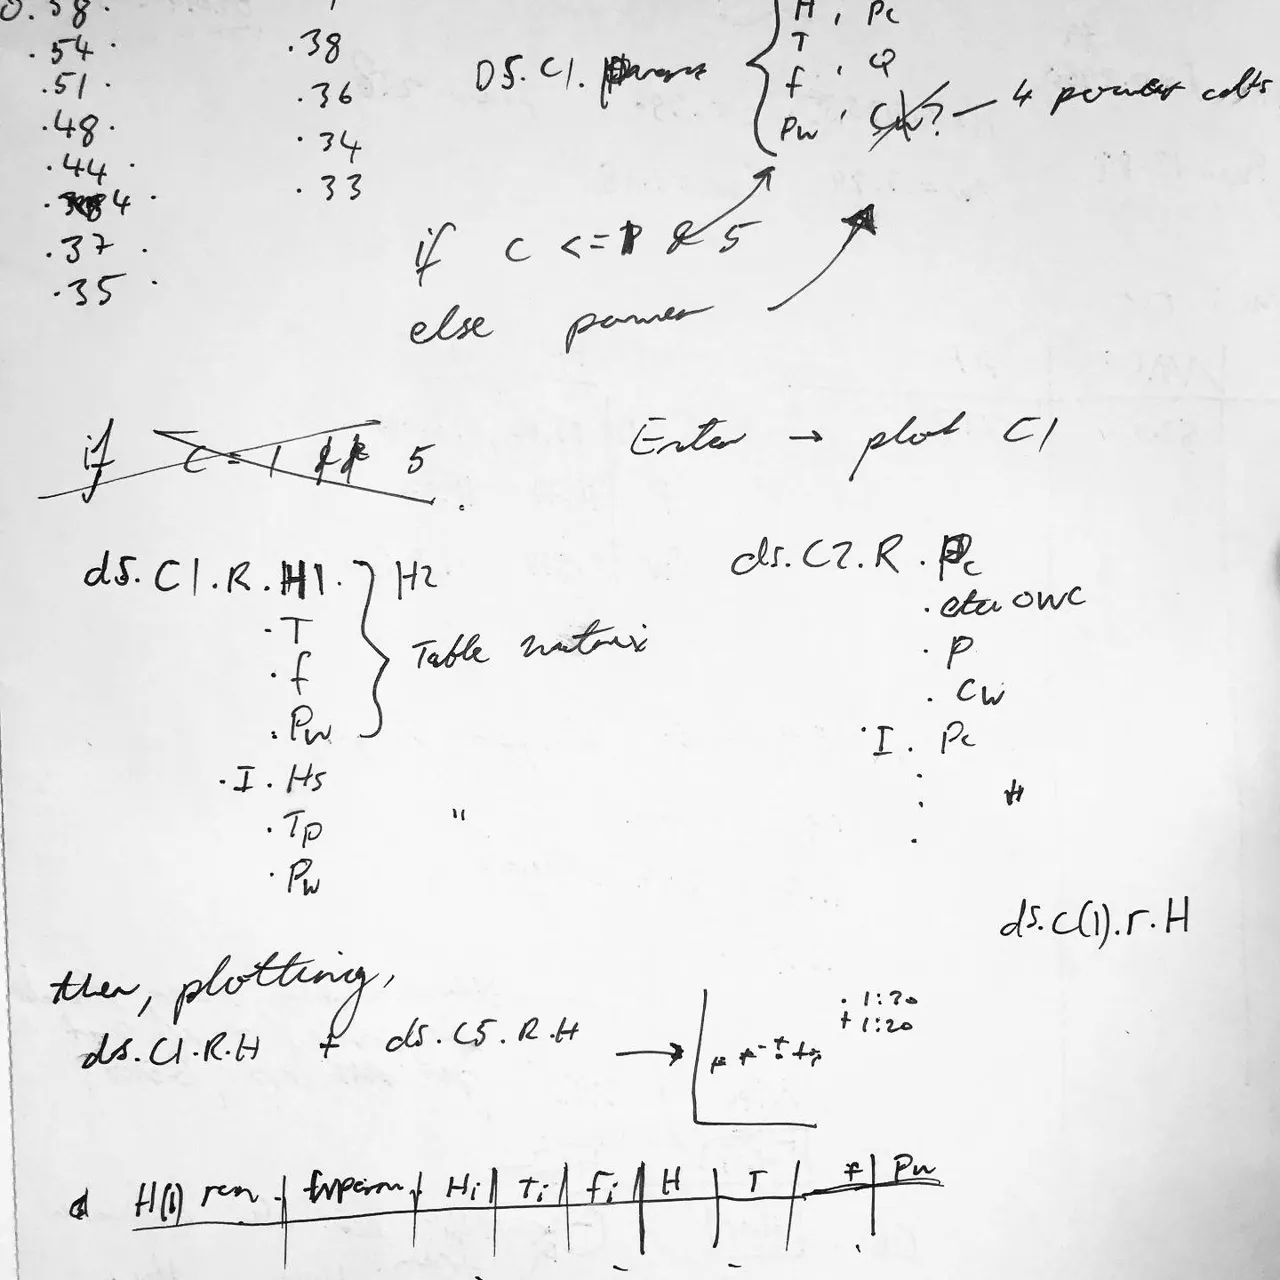 0.58.
.54.
.51.
.48.
.44.
.37.
.35.
.38
.36
.34
.33
DS.C1.
H, Pc
T
f, Q
Pw, Cw? — 4 power
if C <= 1 & 5
else power
if C = 1 && 5
Enter → plot C1
ds.C1.R.H1. } H2
.T
.f
.Pw
Table matrix
.I.Hs
.Tp "
.Pw
ds.C2.R.Pc
.eta OWC
.P
.Cw
.I.Pc
.
.
.
"
ds.C(1).r.H
then, plotting,
ds.C1.R.H + ds.C5.R.H →
. 1:30
+ 1:20
H(1) run | | Hi | Ti | fi | H | T | f | Pw